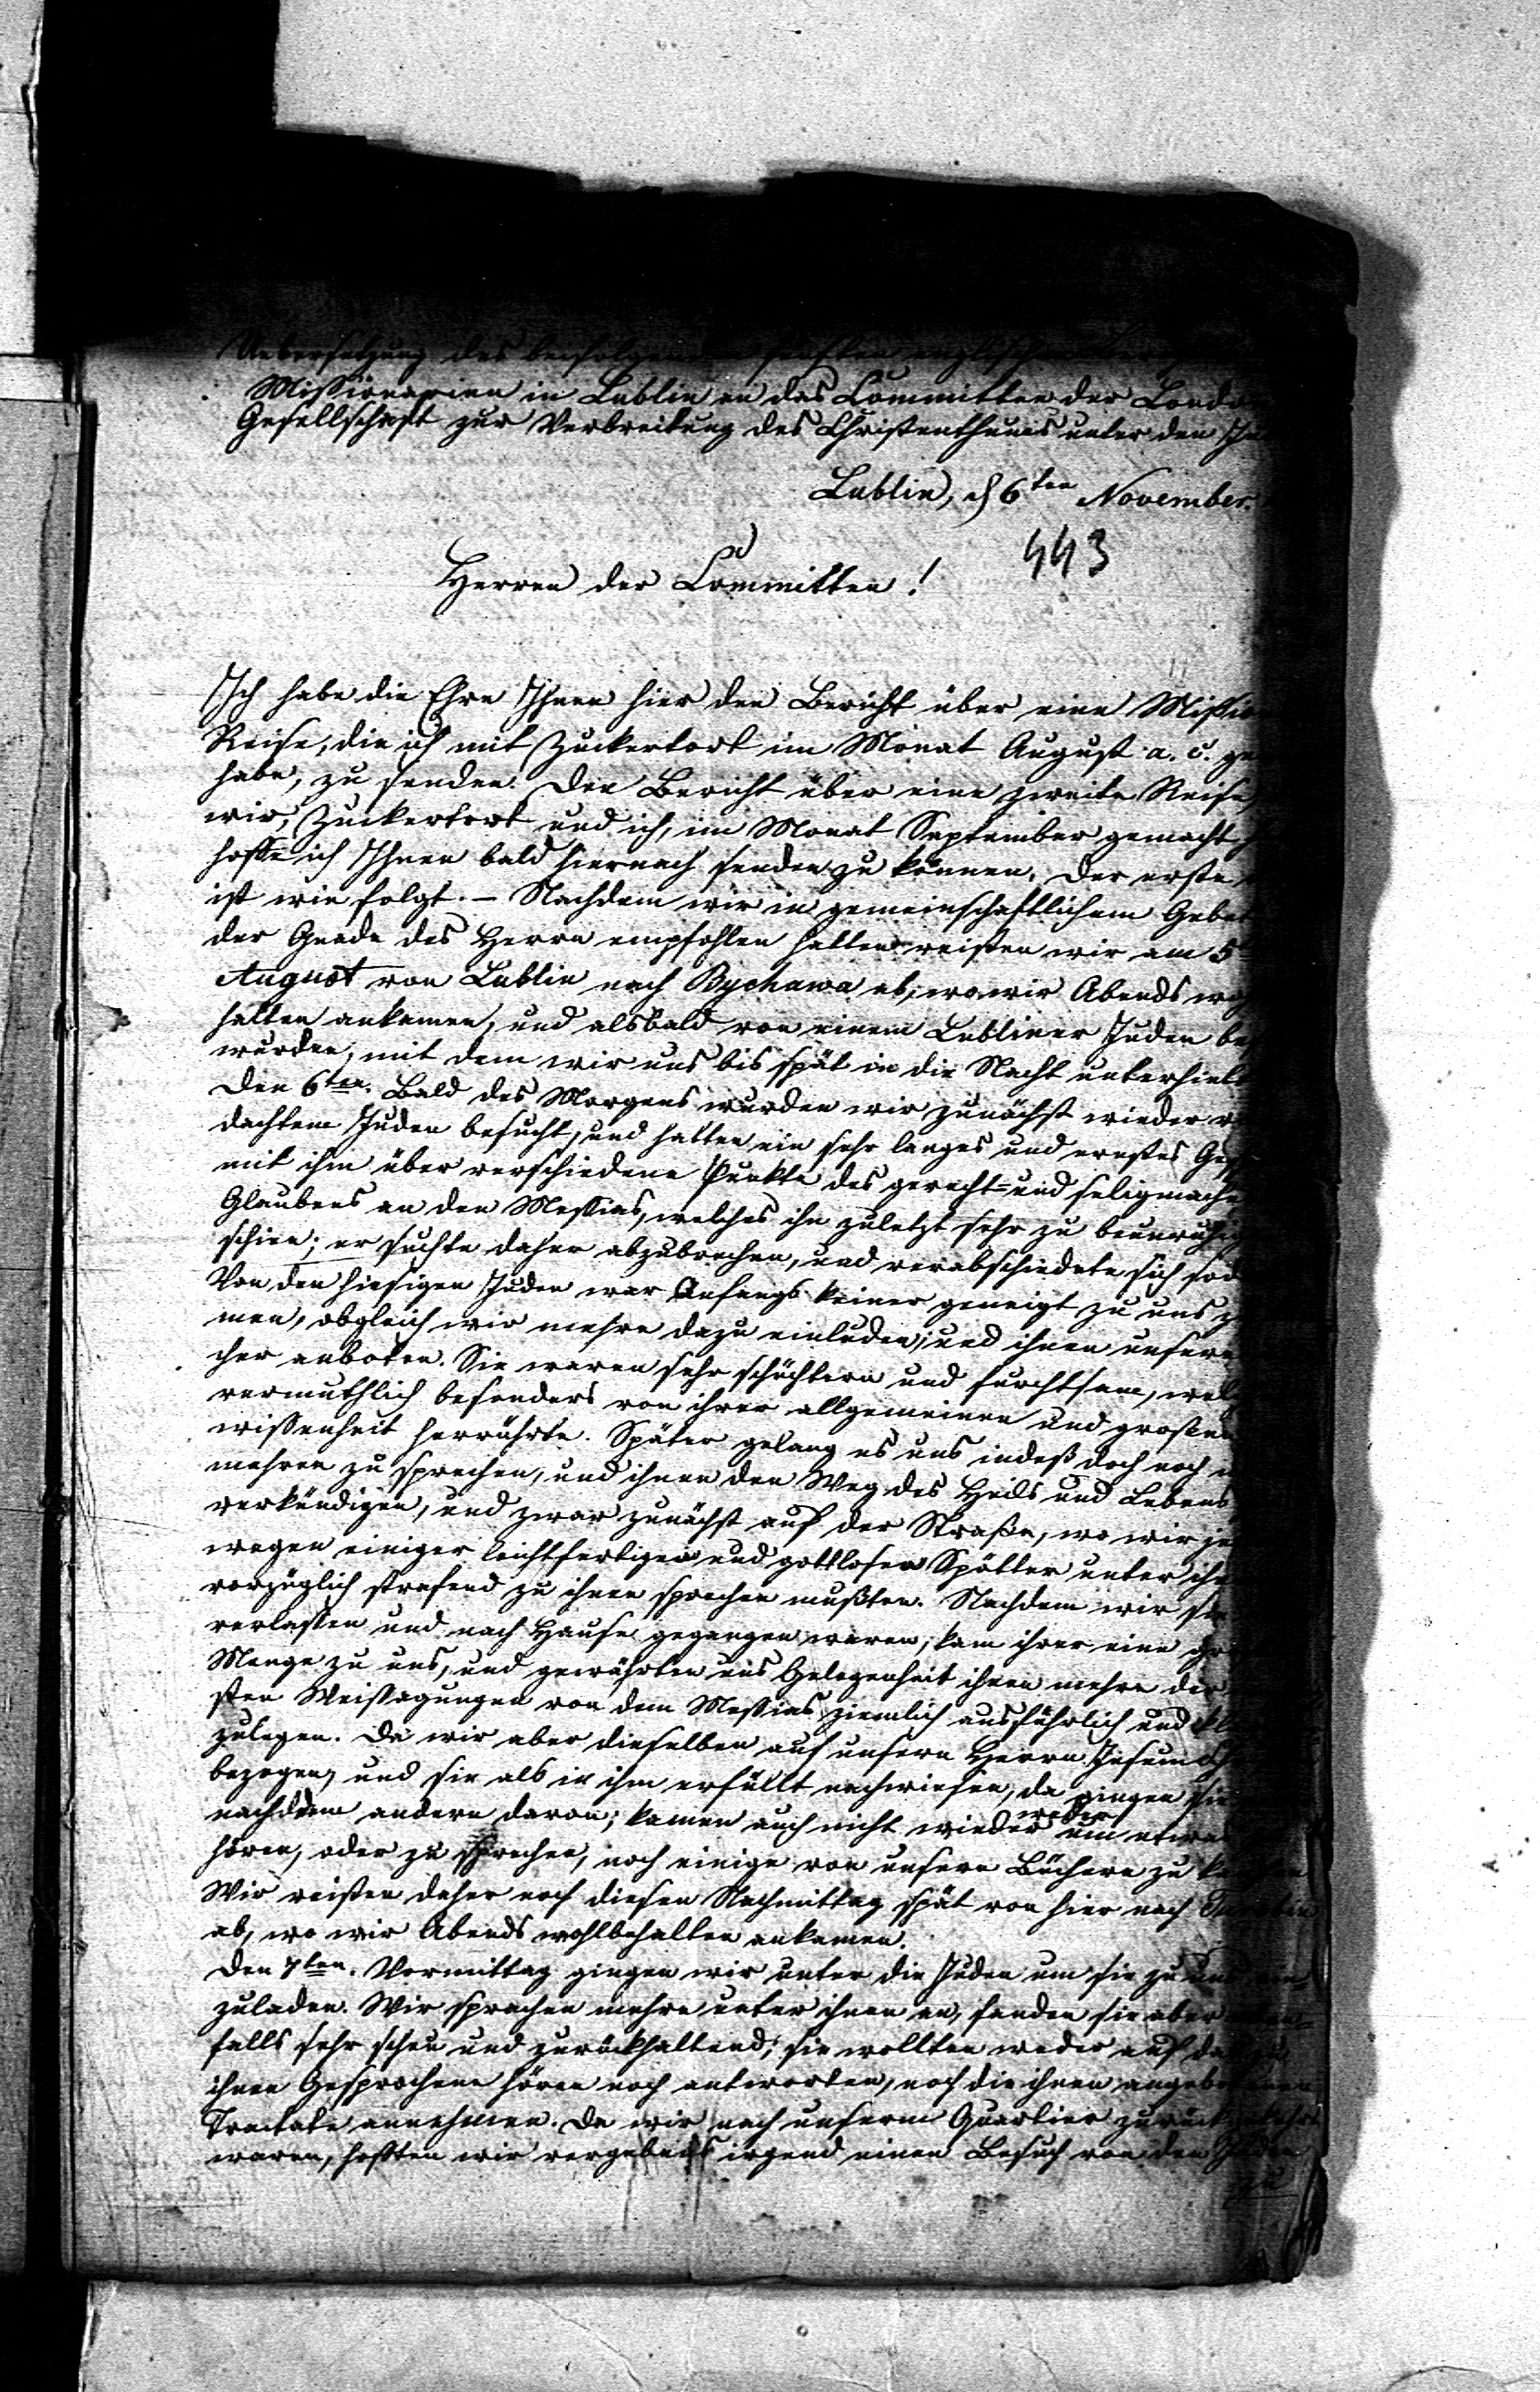 Uebersetzung des beifolgen
Missionarien in Lublin an das Committee der London
Gesellschaft zur Verbreitung des Christenthums unter den
Lublin, d 6ten November.
443
Herren der Committee!
Ich habe die Ehre Ihnen hier den Bericht über eine Mission
Reise, die ich mit Zuckertort im Monat August a. c.
habe, zu senden. Den Bericht über eine zweite Reise,
wir, Zuckertort und ich, im Monat September gemacht,
hoffe ich Ihnen bald hiernach senden zu können. Der erste
ist wie folgt. – Nachdem wir in gemeinschaftlichem Gebet
der Gnade des Herrn empfohlen hatten reisten wir am 5
August von Lublin nach Bychawa ab, wo wir Abends
halten ankamen, und alsbald von einem Lubliner Juden
wurden, mit dem wir uns bis spät in die Nacht unterhiel
Den 6ten. Bald des Morgens wurden wir zunächst wieder
dachtem Juden besucht, und hatten ein sehr langes und ernstes
mit ihm über verschiedene Punkte des gerecht= und seligmache
Glaubens an den Messias, welches ihn zuletzt sehr zu beunruhig
schien; er suchte daher abzubrechen, und verabschiedete sich
Von den hiesigen Juden war Anfangs keiner geneigt zu uns
men, obgleich wir mehre dazu einluden, und ihnen unsere
cher anboten. Sie waren sehr schüchtern und furchtsam,
vermuthlich besonders von ihrer allgemeinen und großen
wissenheit herrührte. Später gelang es uns indeß doch noch
mehren zu sprechen, und ihnen den Weg des Heils und Lebens
verkündigen, und zwar zunächst auf der Straße, wo wir
wegen einiger leichtfertigen und gottlosen Spötter unter
vorzüglich strafend zu ihnen sprechen mußten. Nachdem wir sie
verlassen und nach Hause gegangen waren, kam ihrer eine
Menge zu uns, und gewährten uns Gelegenheit ihnen mehre der
sten Weissagungen von dem Messias ziemlich ausführlich und
zulegen. Da wir aber dieselben auf unsern Herrn Jesum
bezogen, und sie als in ihm erfüllt nachwiesen, da gingen sie
weder
nachdem andern davon; kamen auch nicht wieder um etwas
hören, oder zu sprechen, noch einige von unsern Büchern zu
Wir reisten daher noch diesen Nachmittag spät von hier nach Turobin
ab, wo wir Abends wohlbehalten ankamen.
Den 7ten. Vormittag gingen wir unter die Juden um sie zu uns
zuladen. Wir sprachen mehre unter ihnen an, fanden sie aber
falls sehr scheu und zurückhaltend; sie wollten weder auf das
ihnen Gesprochene hören noch antworten, noch die ihnen angebotenen
Tractate annehmen. Da wir nach unserm Quartier zurückgekehrt
waren, hofften wir vergebens irgend einen Besuch von den Juden
zu